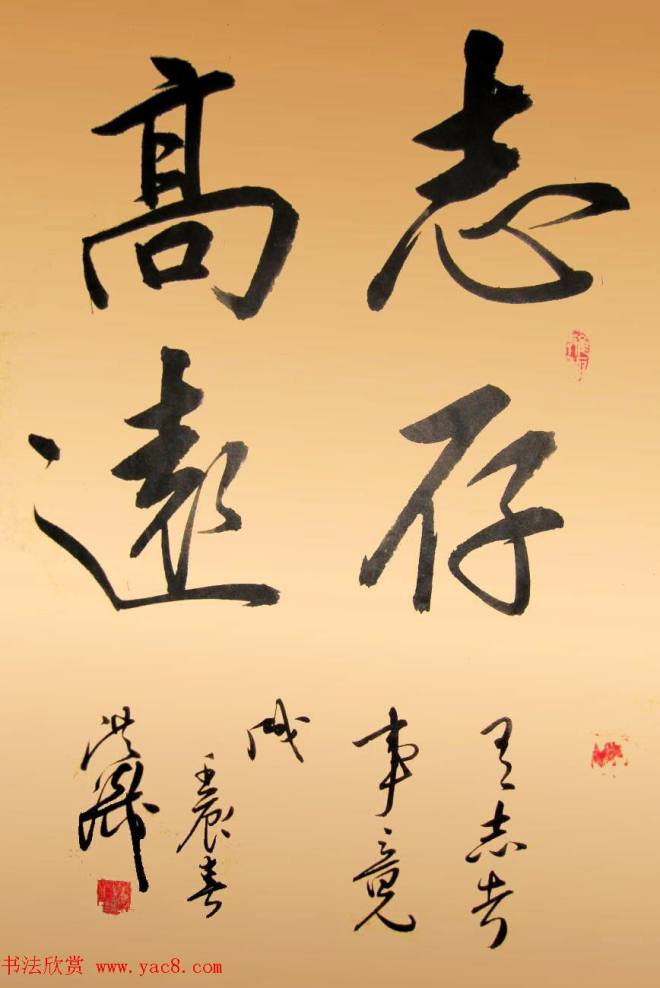 志存
高遠
有志者
事竟
成
壬辰春
洪
书法欣赏 www.yac8.com